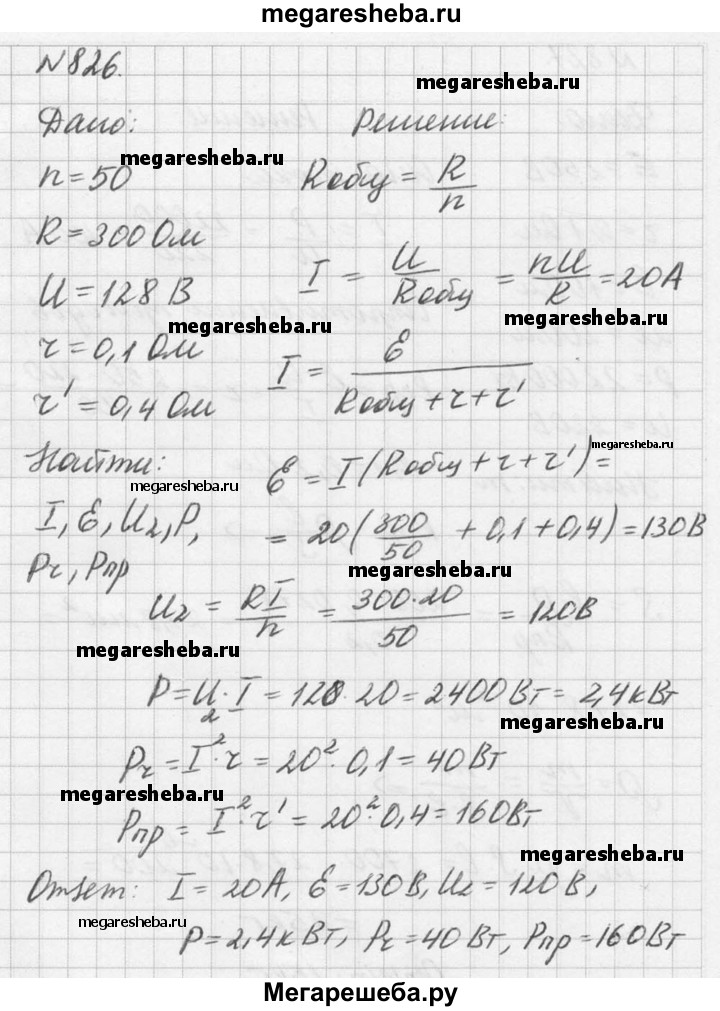 megaresheba.ru
N826.
megaresheba.ru
Дано: Решение:
megaresheba.ru
n=50 Rобщ = R/n
R=300 Ом
U=128 В I = U/Rобщ = nU/R = 20А
megaresheba.ru megaresheba.ru
r=0,1 Ом I = ℰ/(Rобщ+r+r')
r'=0,4 Ом
megaresheba.ru
Найти: ℰ = I(Rобщ+r+r')=
megaresheba.ru
I, ℰ, U₂, P, = 20(300/50 + 0,1+0,4)=130В
Pr, Pпр
megaresheba.ru
U₂ = RI/n = 300·20/50 = 120В
megaresheba.ru
P=U₂·I=120·20=2400Вт=2,4кВт
megaresheba.ru
Pr=I²·r=20²·0,1=40Вт
megaresheba.ru
Pпр=I²·r'=20²·0,4=160Вт
megaresheba.ru
Ответ: I=20А, ℰ=130В, U₂=120В,
megaresheba.ru
P=2,4кВт, Pr=40Вт, Pпр=160Вт
Мегарешеба.ру